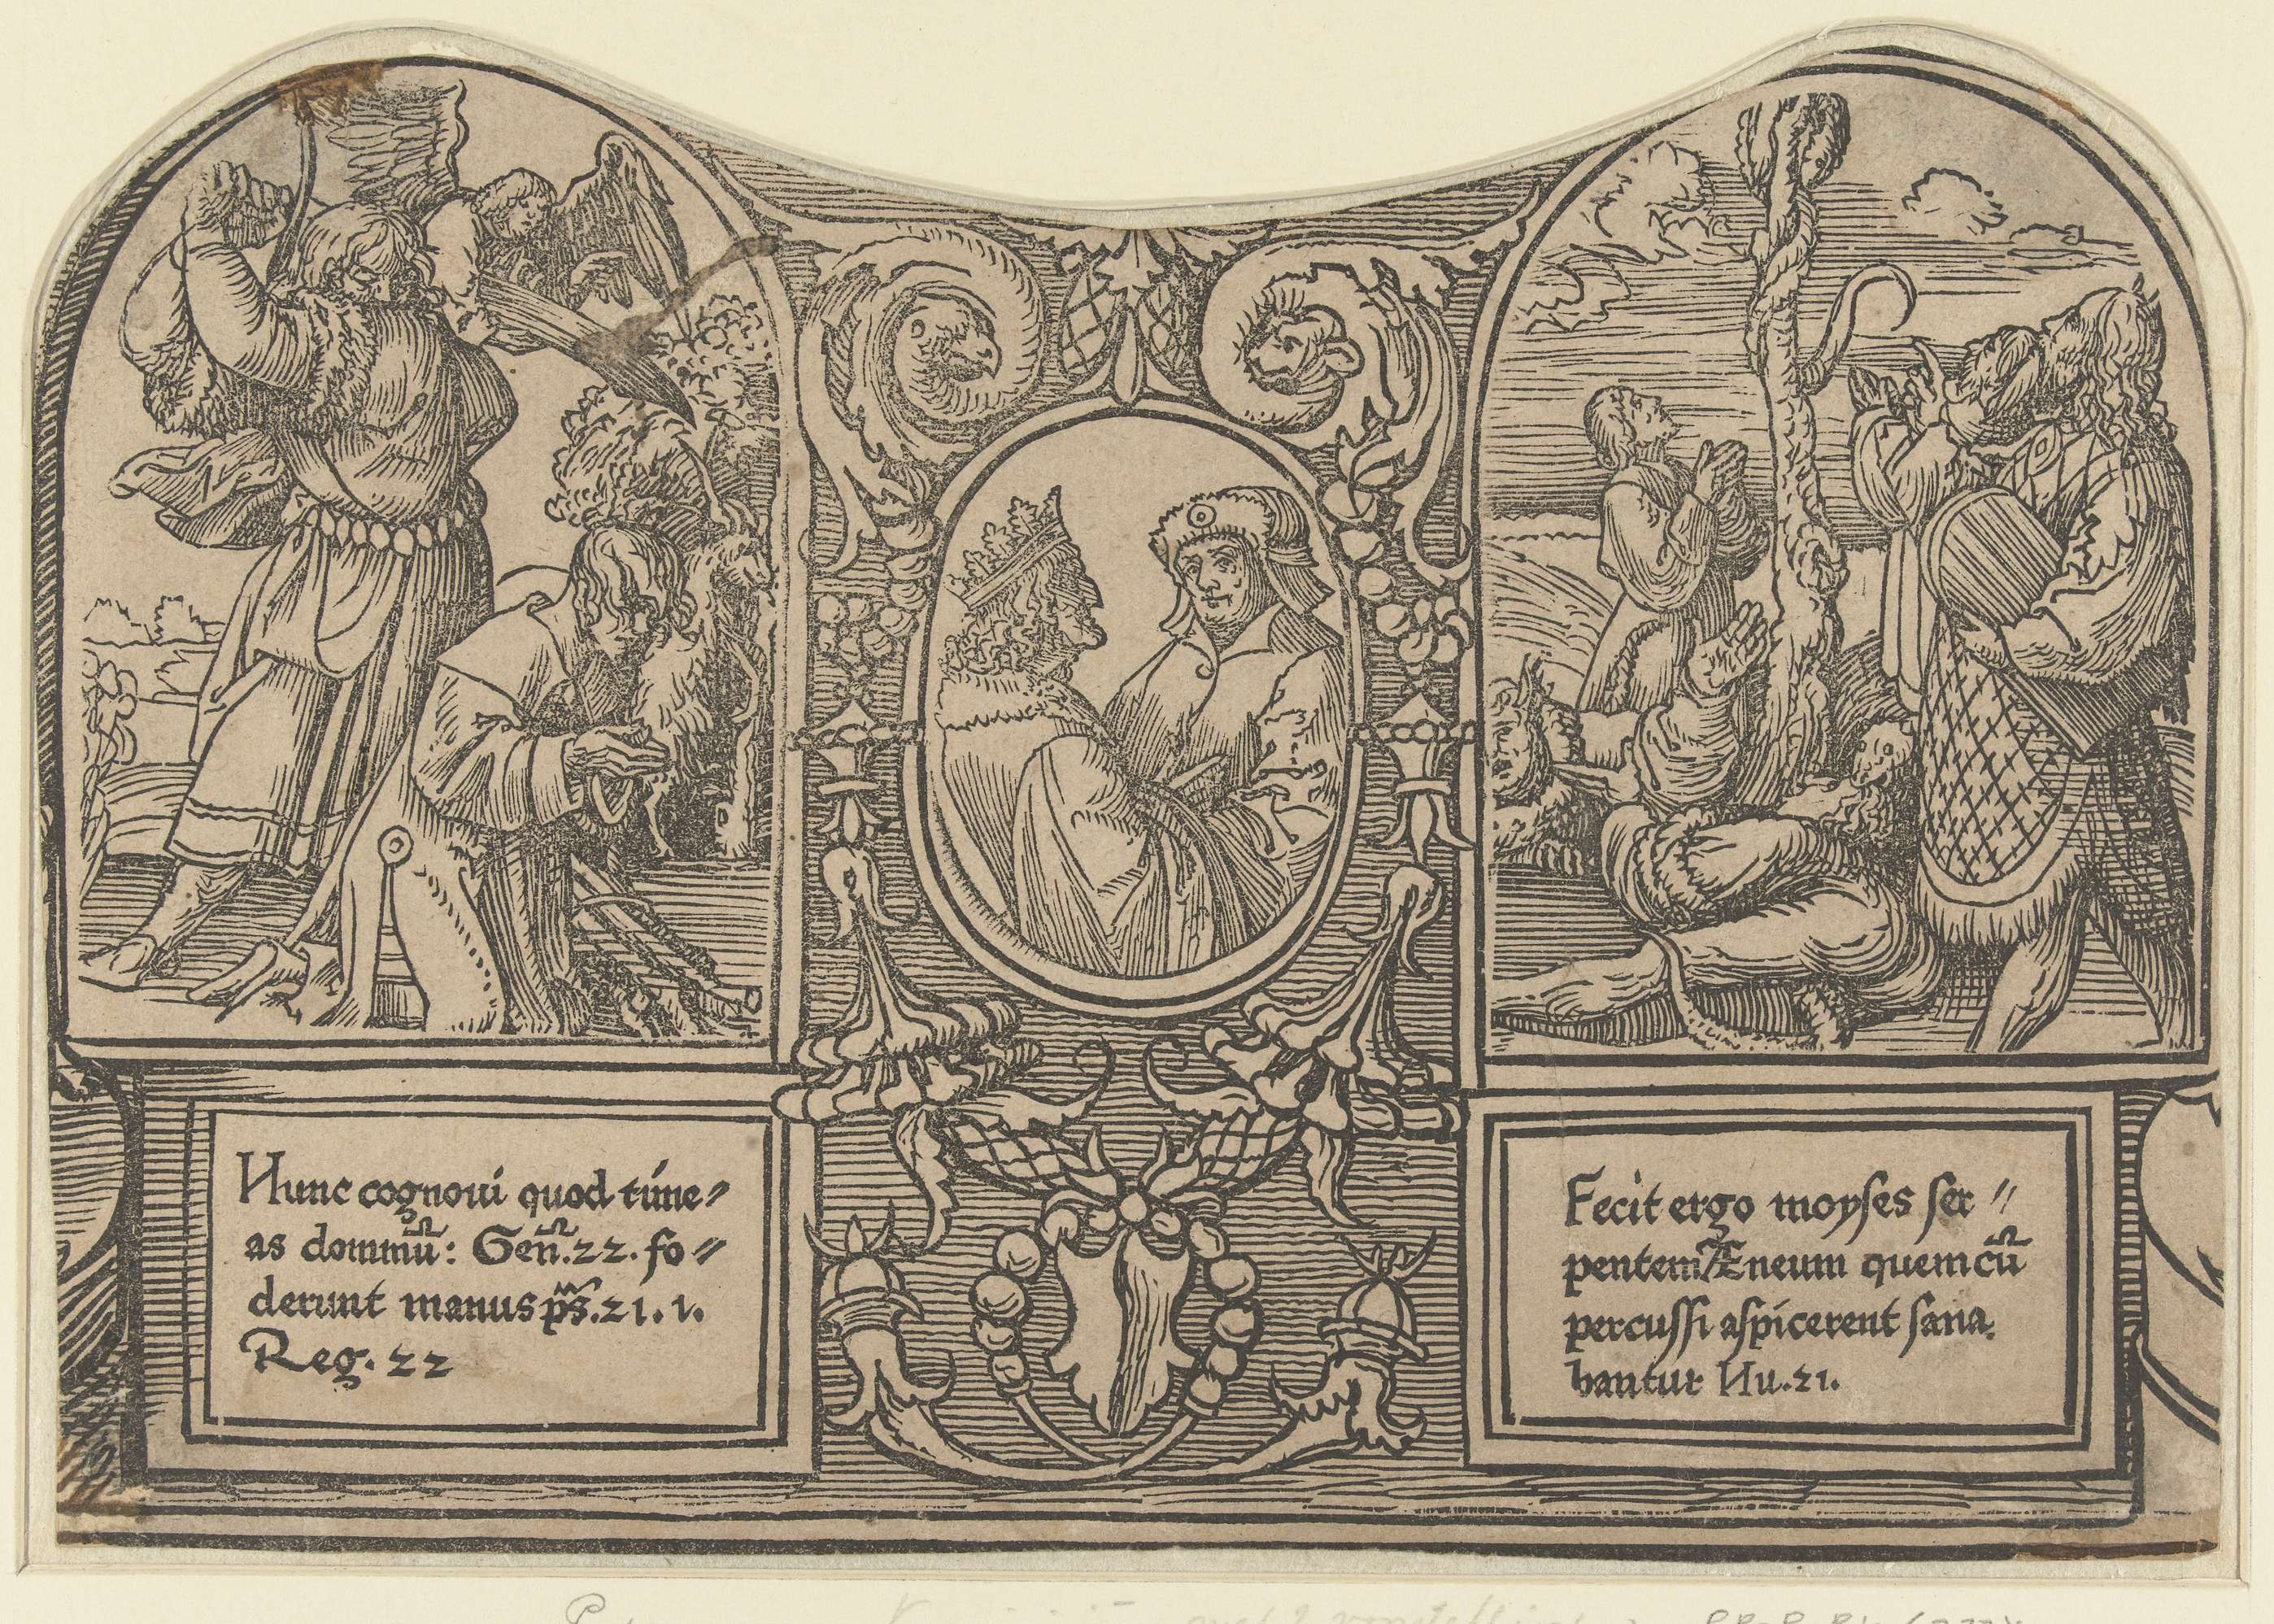 Nunc cognovi quod time⸗
as dominũ: Geñ.22. fo⸗
derunt manus ps̃.21. 1.
Reg. 22
Fecit ergo moyses ser⸗
pentem Æneum quem cũ
percussi aspicerent sana
bantur Nu.21.